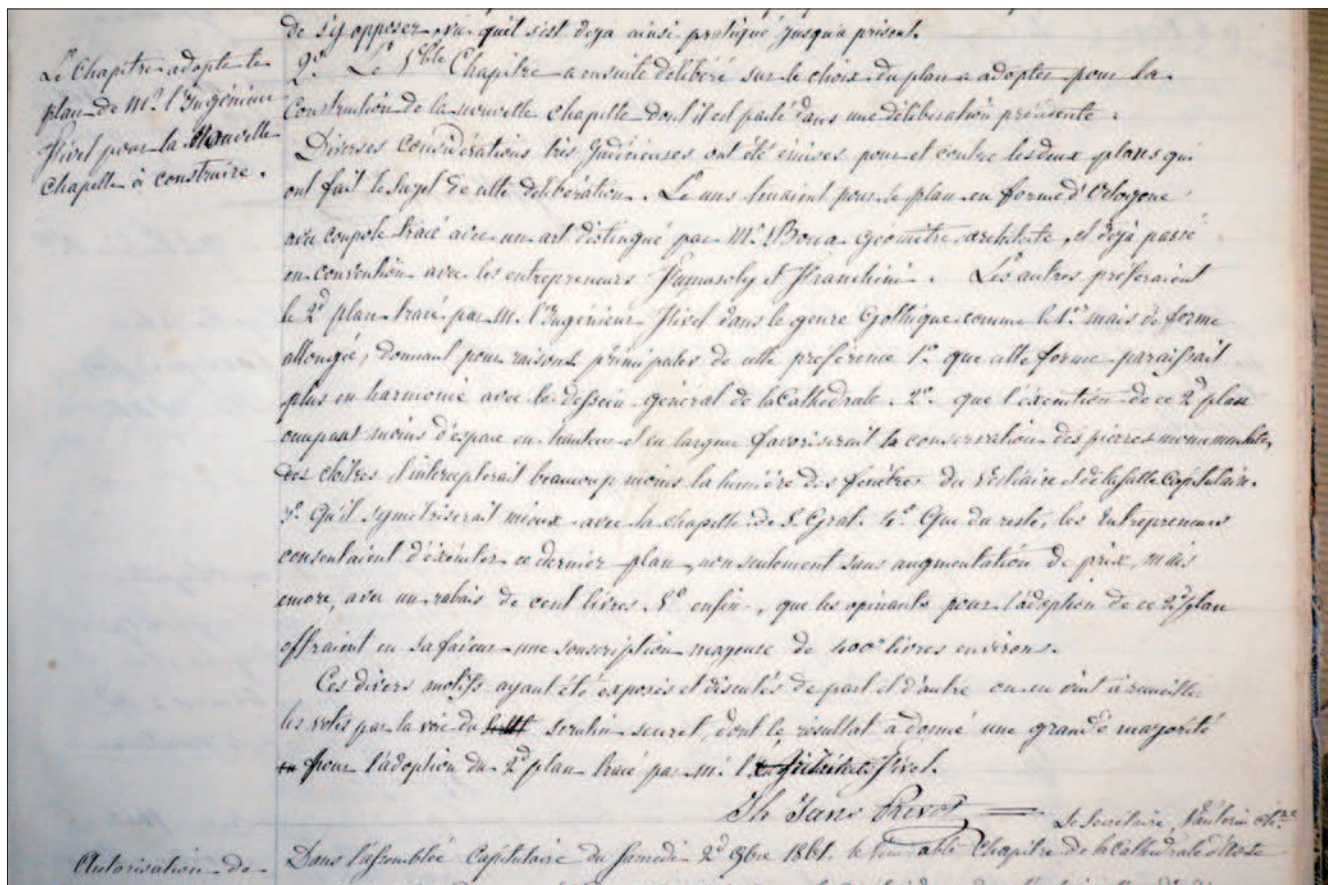 de s'y opposer, vu qu'il s'est deja ainsi pratiqué jusqu'a présent.
Le Chapitre adopte le
plan de Mr. l'Ingénieur
Pivel pour la nouvelle
Chapelle à construire.
2º. Le Vble Chapitre a ensuite délibéré sur le choix du plan a adopter pour la
Construction de la nouvelle chapelle dont il est parlé dans une délibération précédente.
Diverses considérations très judicieuses ont été émises pour et contre les deux plans qui
ont fait le sujet de cette délibération. Le uns tenaient pour le plan en forme d'Octogone
avec coupole tracé avec un art distingué par Mr. Géomètre architecte, et dejà passé
en convention avec les entrepreneurs et Franchini. Les autres préferaient
le 2d plan tracé par M. l'Ingénieur Pivel dans le genre Gothique comme le 1er mais de forme
allongée, donnant pour raisons principales de cette preference 1º que cette forme paraissait
plus en harmonie avec le dessein général de la Cathédrale. 2º. que l'exécution de ce 2d plan
occupant moins d'espace en hauteur et en largeur favoriserait la conservation des pierres monumentales
des cloîtres et intercepterait beaucoup moins la lumière des fenêtres du Vestiaire et de la salle Capitulaire.
3º. Qu'il symétriserait mieux avec la chapelle de S. Grat. 4º. Que du reste, les Entrepreneurs
consentaient d'exécuter ce dernier plan, non seulement sans augmentation de prix, mais
encore, avec un rabais de cent livres. 5º enfin, que les opinants pour l'adoption de ce 2d plan
offraient en sa faveur une souscription de 400 livres environs.
Ces divers motifs ayant été exposés et discutés de part et d'autre on en vint à recueillir
les votes par la voie du scrutin secret, dont le résultat a donné une grande majorité
pour l'adoption du 2d plan tracé par mr. l'Architecte Pivel.
Le Secrétaire
Autorisation de
Dans l'assemblée Capitulaire du Samedi 2d 9bre 1861. le Vénérable Chapitre de la Cathédrale d'Aoste